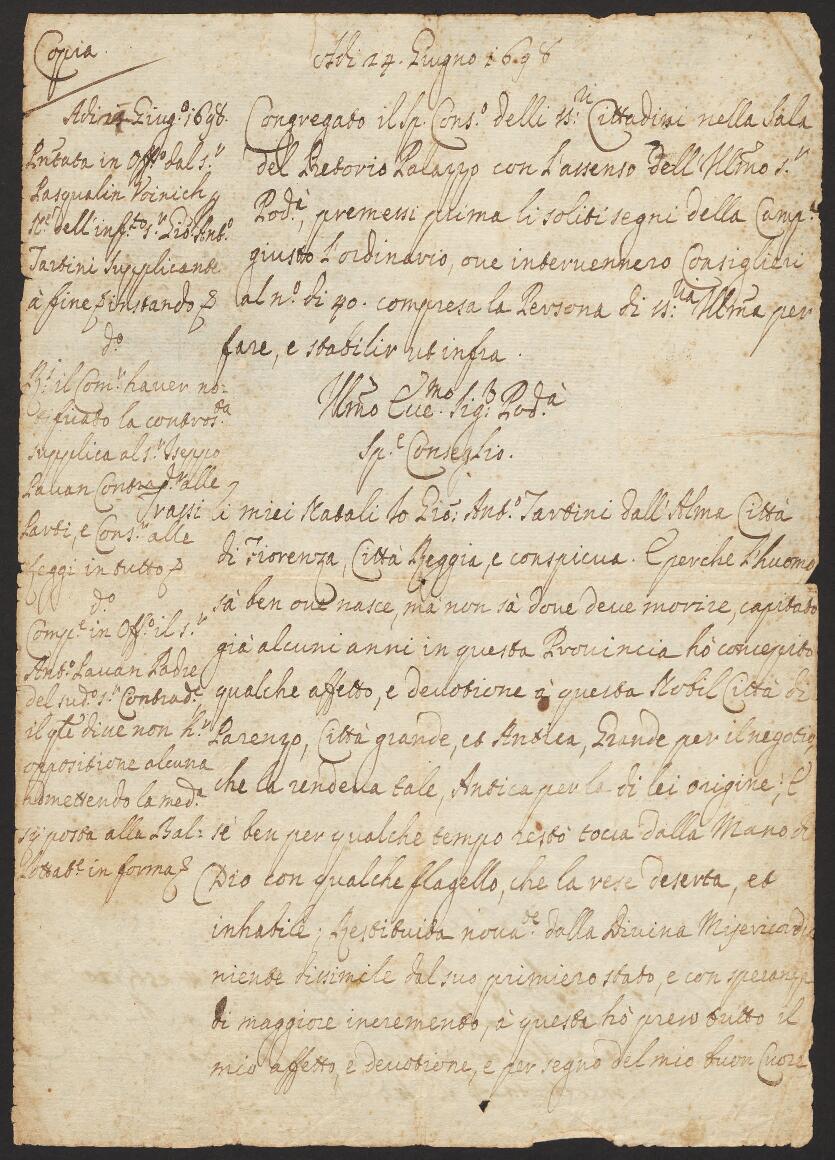 Copia
Adi 24. Giugno 1698
Adi 24 Giug.º 1698.
Pñtata in Off.º dal s.r
Pasqualin Voinich
N.º dell'inf.to s.r Gio: Ant.º
Tartini Supplicante
à fine instando
d.º
R.t il Com.r haver no:
tificato la contros.ta
supplica al s.r Iseppo
Pavan Contrad.r alle
Parti, e Cons.r alle
Leggi in tutto
d.º
Comp.e in Off.º il s.r
Ant.º Pavan Padre
del sud.º s.r Contrad.e
il qle dice non h.r
oppositione alcuna
admettendo la med.a
sij posta alla Bal:
lottat.e in forma
Congregato il Sp. Cons.º delli ss.ri Cittadini nella Sala
del Pretorio Palazzo con l'assenso dell'Ill̃mo s.r
Pod.à, premessi prima li soliti segni della Camp.a
giusto l'ordinario, ove intervennero Consiglieri
al n.º di 40. compresa la Persona di ss.ria Ill̃ma per
fare, e stabilir ut infra.
Ill̃mo Ecc.mo Sig.r Pod.à
Sp.e Conseglio.
Trassi li miei Natali Io Gio: Ant.º Tartini dall'Alma Città
di Fiorenza, Città Reggia, e conspicua. E perche l'huomo
sà ben ove nasce, mà non sà dove deve morire, capitato
già alcuni anni in questa Provincia hò concepito
qualche affetto, e devotione à questa Nobil Città di
Parenzo, Città grande, et Antica, Grande per il negotio,
che la rendeva tale, Antica per la di lei origine; E
se ben per qualche tempo restò tocca dalla Mano di
Dio con qualche flagello, che la rese deserta, et
inhabile; Restituita nova.te dalla Divina Misericordia
niente dissimile dal suo primiero stato, e con speranza
di maggiore incremento, à questa hò preso tutto il
mio affetto, e devotione, e per segno del mio buon Cuore